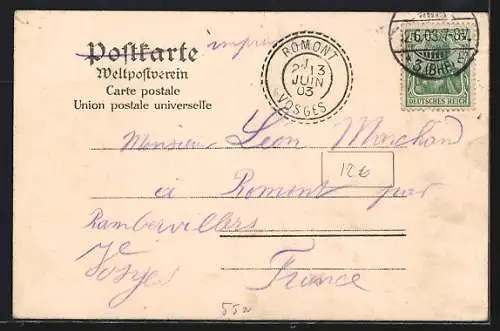 Postkarte imprimé
Weltpostverein
Carte postale
Union postale universelle
ROMONT
13
JUIN
03
VOSGES
DEUTSCHES REICH
Monsieur Leon Marchand
126
à Romont par
Rambervillers
Vosges
France
55a